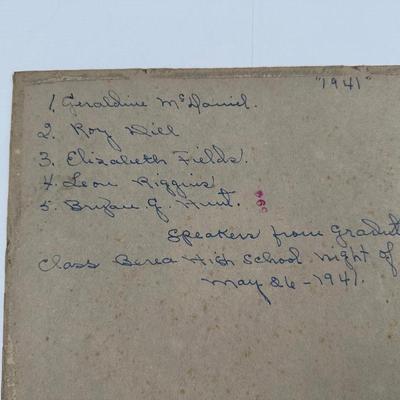 "1941"
1. Geraldine McDaniel.
2. Roy Dill
3. Elizabeth Fields.
4. Leon Riggins
5. Bryan G. Hunt.
Speakers from Gradut
Class Berea High School night of
May 26-1941.